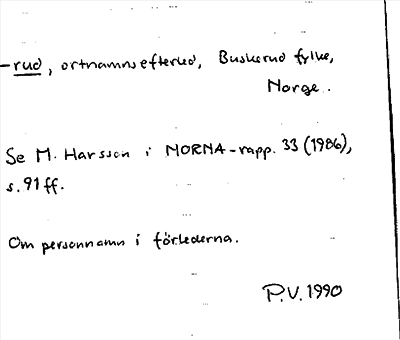 -rud, ortnamnsefterled, Buskerud fylke,
Norge.
Se M. Harsson i NORNA-rapp. 33 (1986),
s. 91 ff.
Om personnamn i förlederna.
P.V. 1990